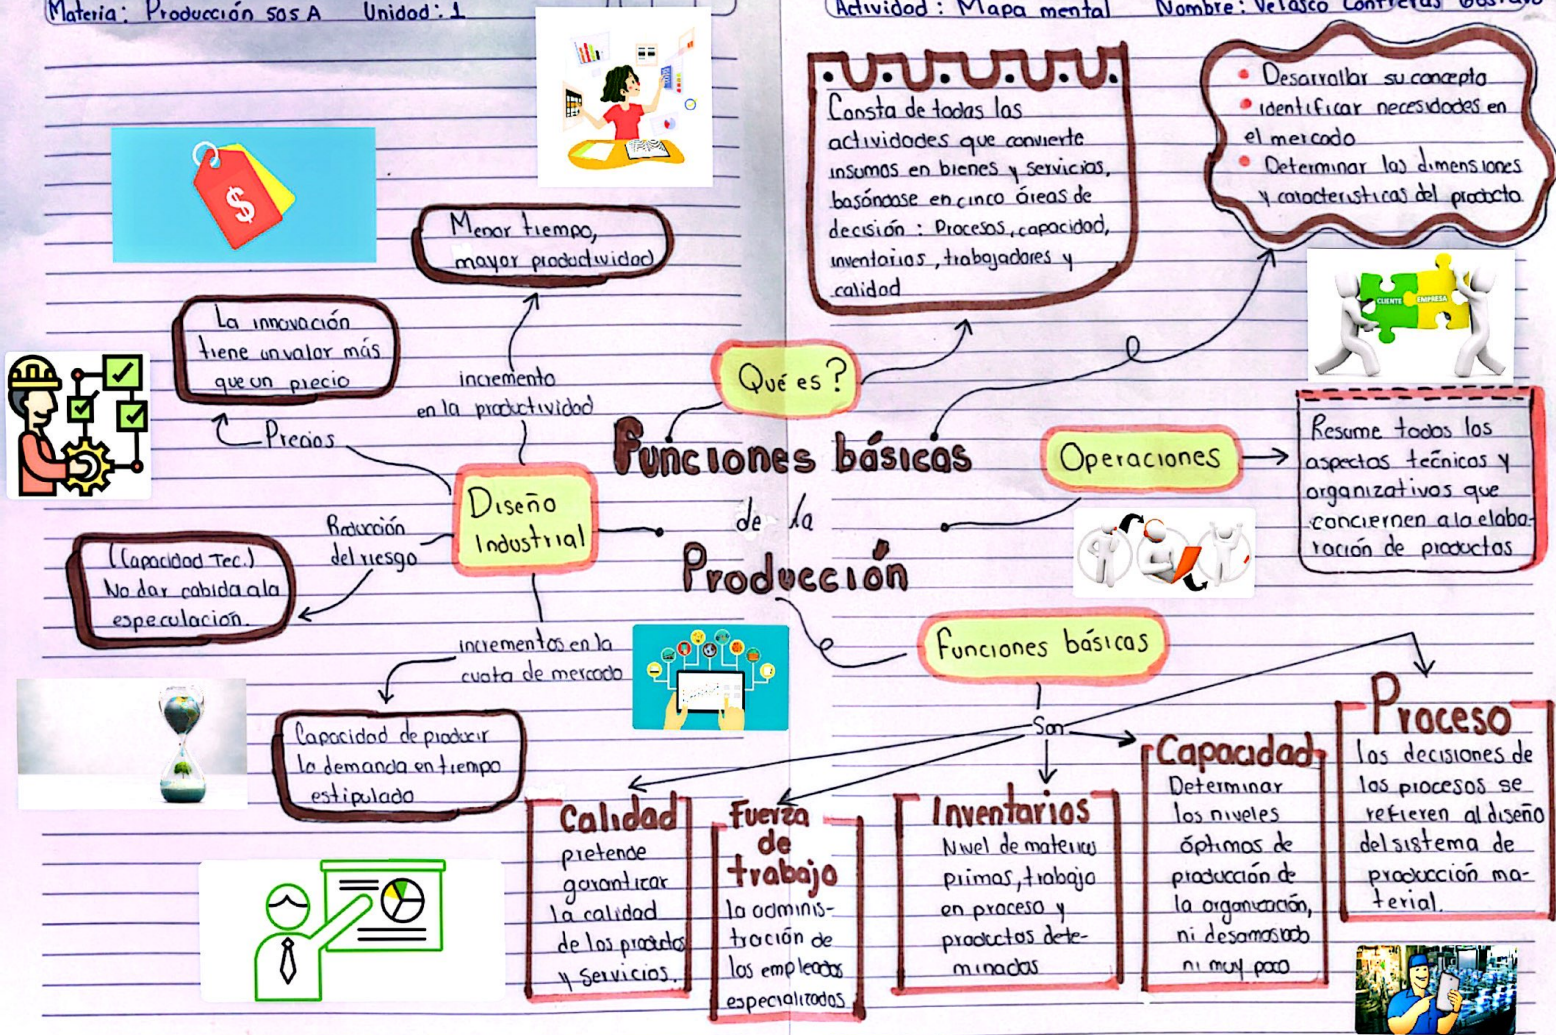 Materia: Producción 505 A Unidad: 1
Actividad: Mapa mental Nombre: Velasco Contreras Gustavo
Menor tiempo,
mayor productividad
La innovación
tiene un valor más
que un precio
incremento
en la productividad
Precios
Diseño
Industrial
Reducción
del riesgo
(Capacidad Tec.)
No dar cabida a la
especulación.
incrementos en la
cuota de mercado
Capacidad de producir
la demanda en tiempo
estipulado
Consta de todas las
actividades que convierte
insumos en bienes y servicios,
basándose en cinco áreas de
decisión: Procesos, capacidad,
inventarios, trabajadores y
calidad
Desarrollar su concepto
identificar necesidades en
el mercado
Determinar las dimensiones
y características del producto.
CLIENTE EMPRESA
Qué es?
Funciones básicas
de la
Producción
Operaciones
Resume todos los
aspectos técnicos y
organizativos que
conciernen a la elabo-
ración de productos
Funciones básicas
Son
Calidad
pretende
garantizar
la calidad
de los productos
y servicios.
Fuerza
de
trabajo
la adminis-
tración de
los empleados
especializados
Inventarios
Nivel de materias
primas, trabajo
en proceso y
productos dete-
minados
Capacidad
Determinar
los niveles
óptimos de
producción de
la organización,
ni desamasado
ni muy poco
Proceso
las decisiones de
los procesos se
refieren al diseño
del sistema de
producción ma-
terial.